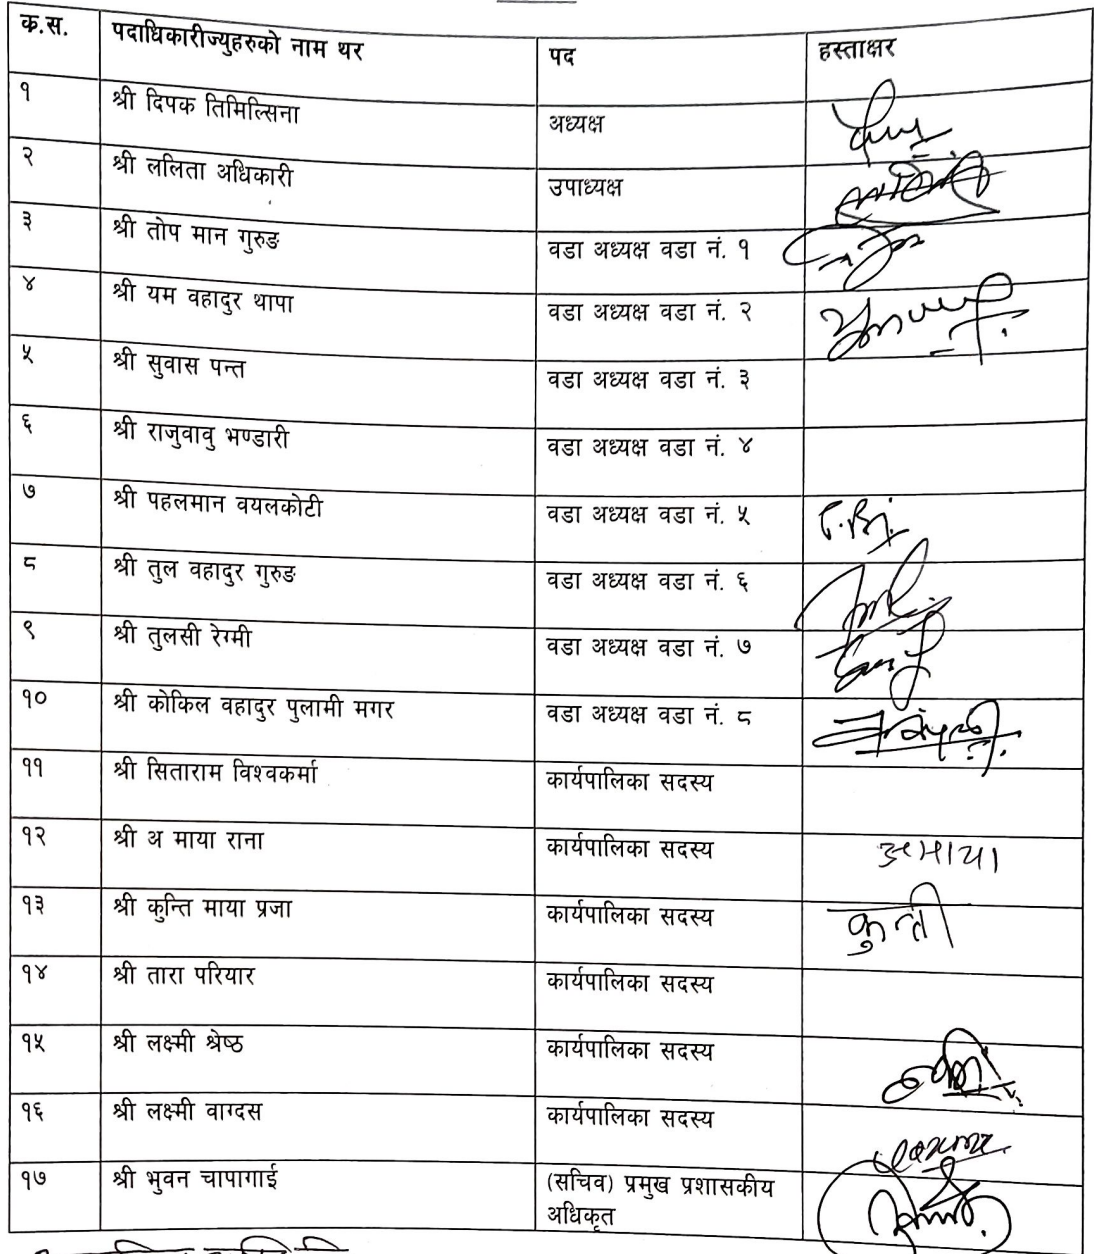 क.स. पदाधिकारीज्युहरुको नाम थर पद हस्ताक्षर
१ श्री दिपक तिमिल्सिना अध्यक्ष
२ श्री ललिता अधिकारी उपाध्यक्ष
३ श्री तोप मान गुरुङ वडा अध्यक्ष वडा नं. १
४ श्री यम वहादुर थापा वडा अध्यक्ष वडा नं. २
५ श्री सुवास पन्त वडा अध्यक्ष वडा नं. ३
६ श्री राजुवावु भण्डारी वडा अध्यक्ष वडा नं. ४
७ श्री पहलमान वयलकोटी वडा अध्यक्ष वडा नं. ५
८ श्री तुल वहादुर गुरुङ वडा अध्यक्ष वडा नं. ६
९ श्री तुलसी रेग्मी वडा अध्यक्ष वडा नं. ७
१० श्री कोकिल वहादुर पुलामी मगर वडा अध्यक्ष वडा नं. ८
११ श्री सिताराम विश्वकर्मा कार्यपालिका सदस्य
१२ श्री अ माया राना कार्यपालिका सदस्य अमाया
१३ श्री कुन्ति माया प्रजा कार्यपालिका सदस्य कुन्ती
१४ श्री तारा परियार कार्यपालिका सदस्य
१५ श्री लक्ष्मी श्रेष्ठ कार्यपालिका सदस्य
१६ श्री लक्ष्मी वाग्दस कार्यपालिका सदस्य
१७ श्री भुवन चापागाई (सचिव) प्रमुख प्रशासकीय
अधिकृत